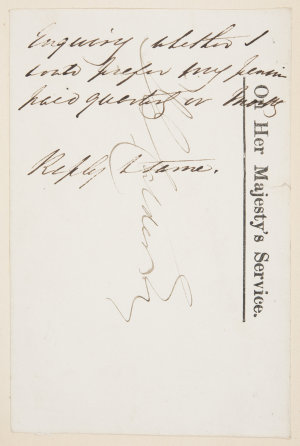 Enquiry whether I
would prefer my pension
paid quarterly or Month
Reply & same.
On Her Majesty's Service.